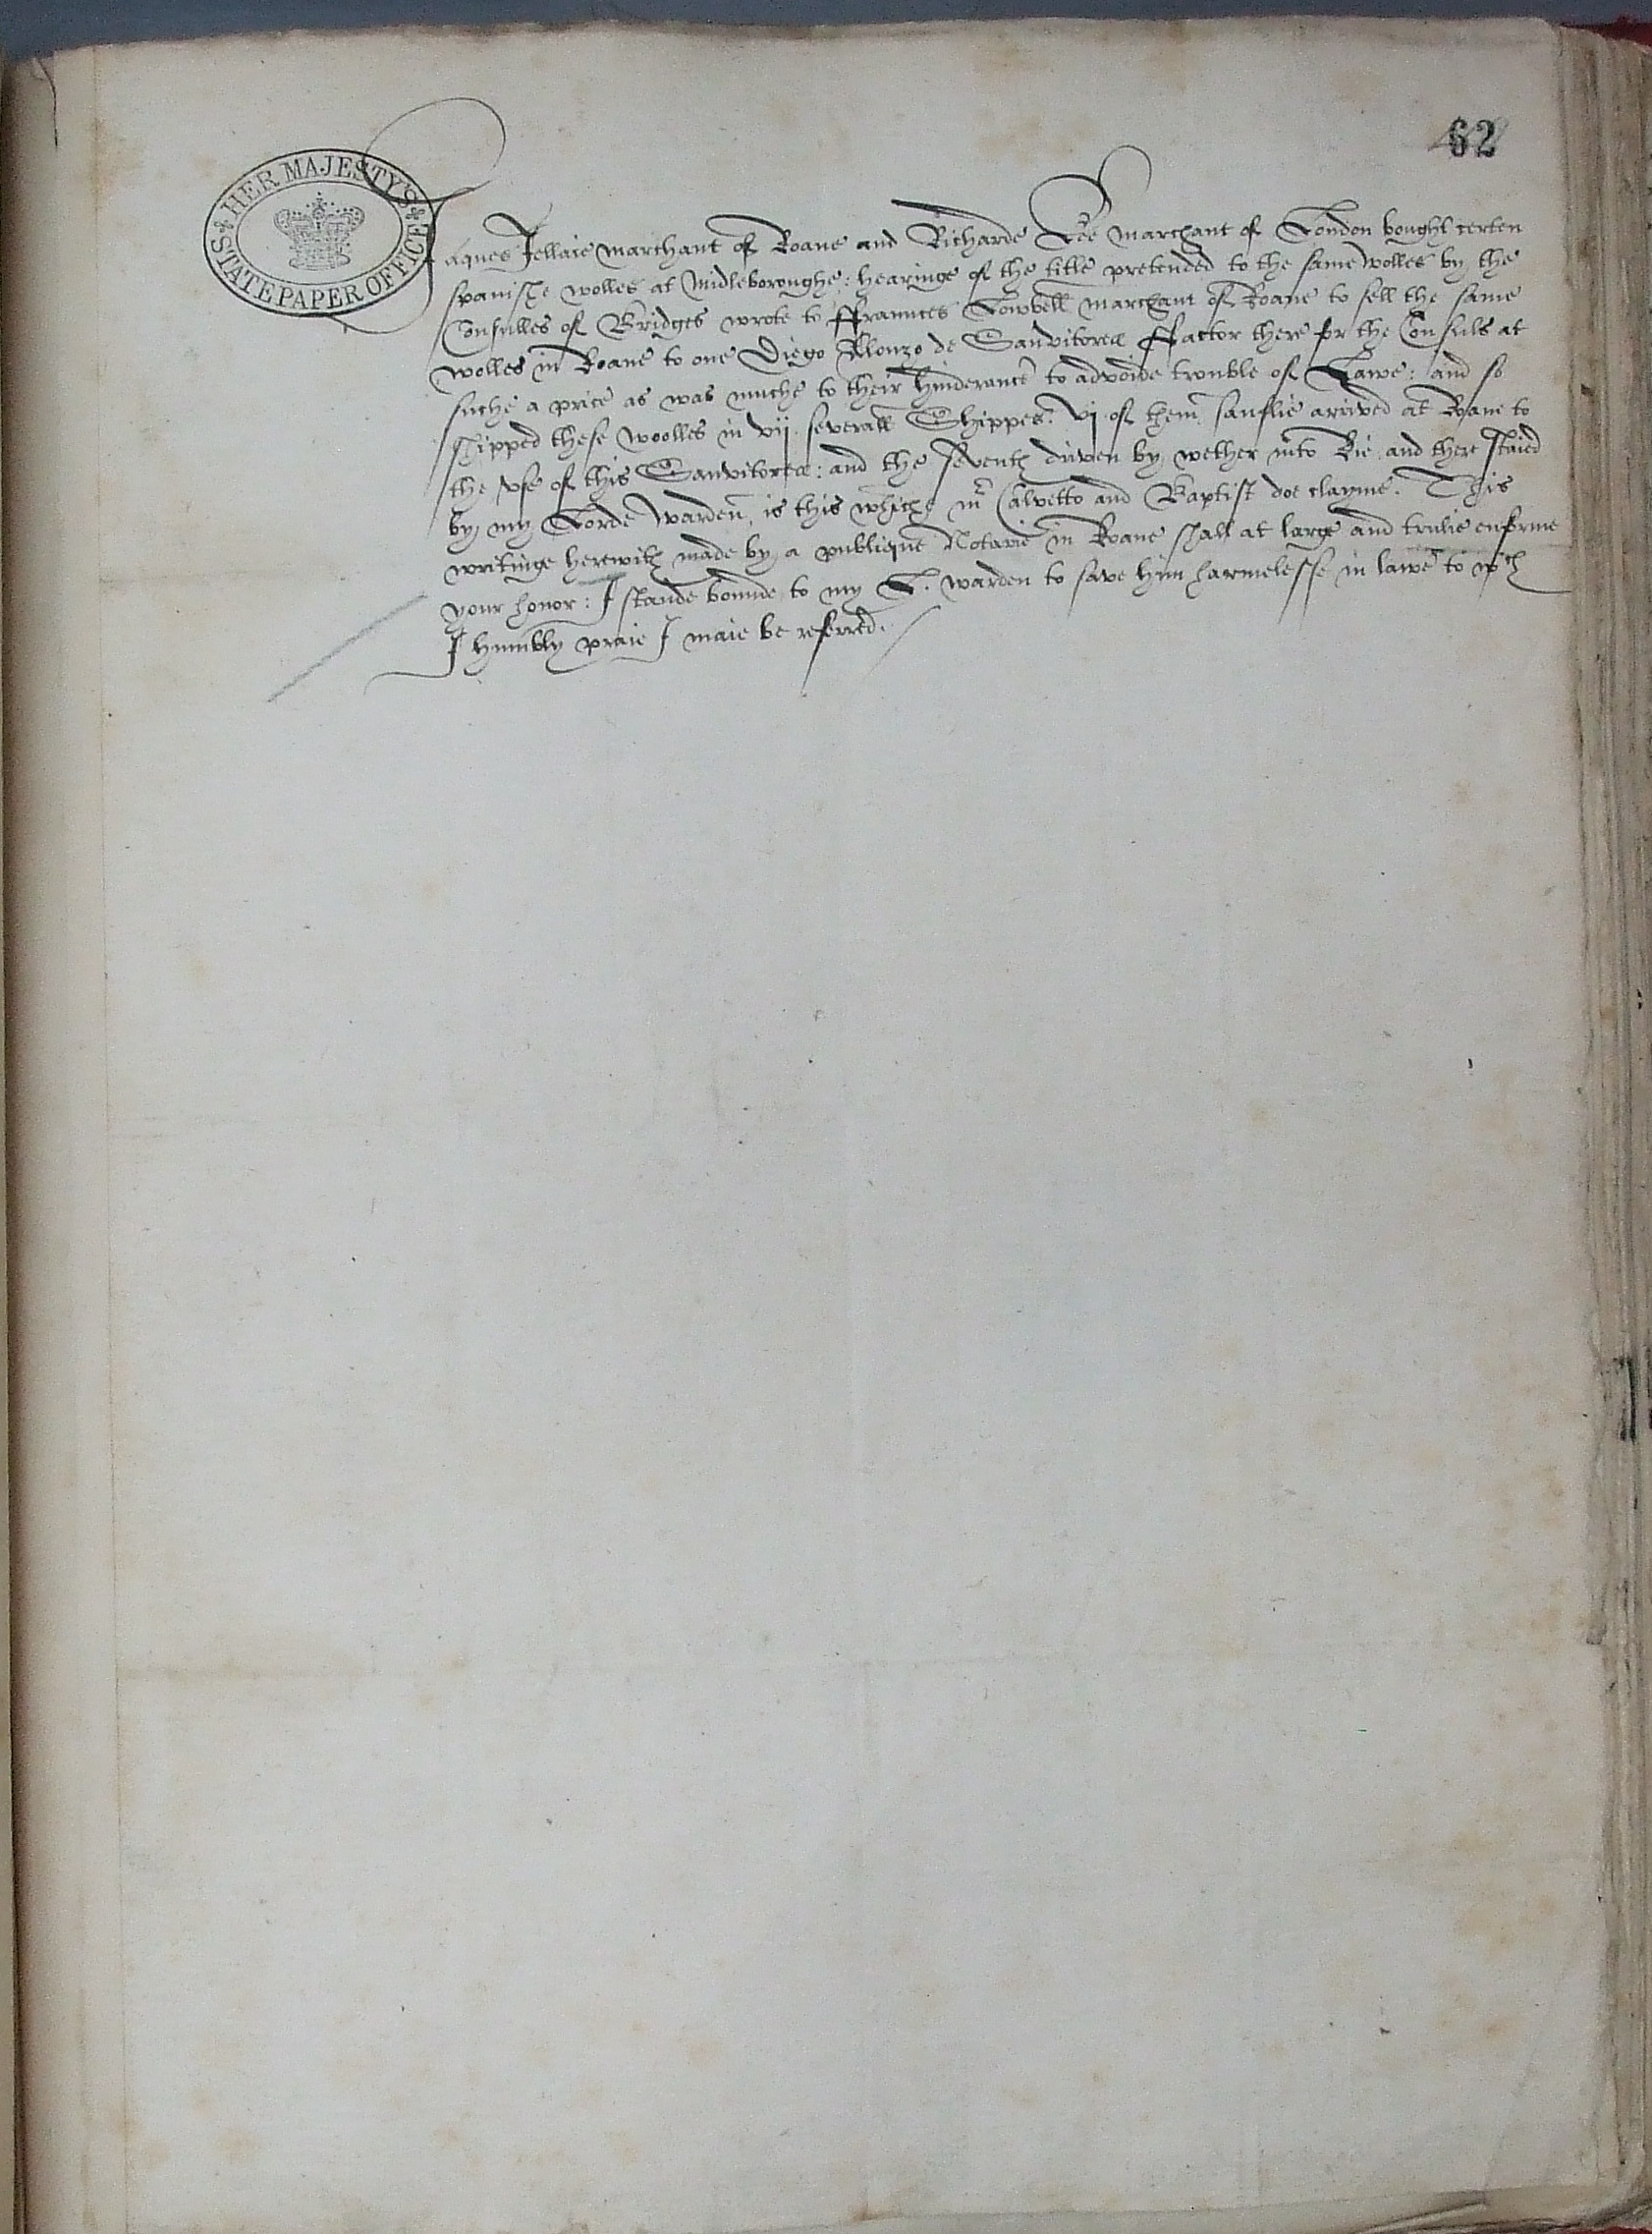 62
HER MAJESTY'S
STATE PAPER OFFICE
Jaques Jellaie marchant of Roane and Richarde Lee marchant of London bought certen
spanishe wolles at Midleboroughe: hearinge of the title pretended to the same wolles by the
Consulles of Bridges wrote to ffraunces Lowbell marchant of Roane to sell the same
wolles in Roane to one Diego Alonzo de Sanvitores ffactor there for the Consuls at
suche a price as was muche to their hinderance to advoide trouble of Lawe: and so
shipped these woolles in vij severall Shippes. vj of them sauflie arrived at Roane to
the vse of this Sanvitores: and the seventh driven by wether into Rie and there staied
by my Lorde Warden, is this whiche mr Calvetto and Baptist doe clayme. This
writinge herewith made by a publique Notarie in Roane shall at large and trulie enforme
your honor: I stande bounde to my L. warden to save him harmelesse in lawe to wch
I humbly praie I maie be referred.